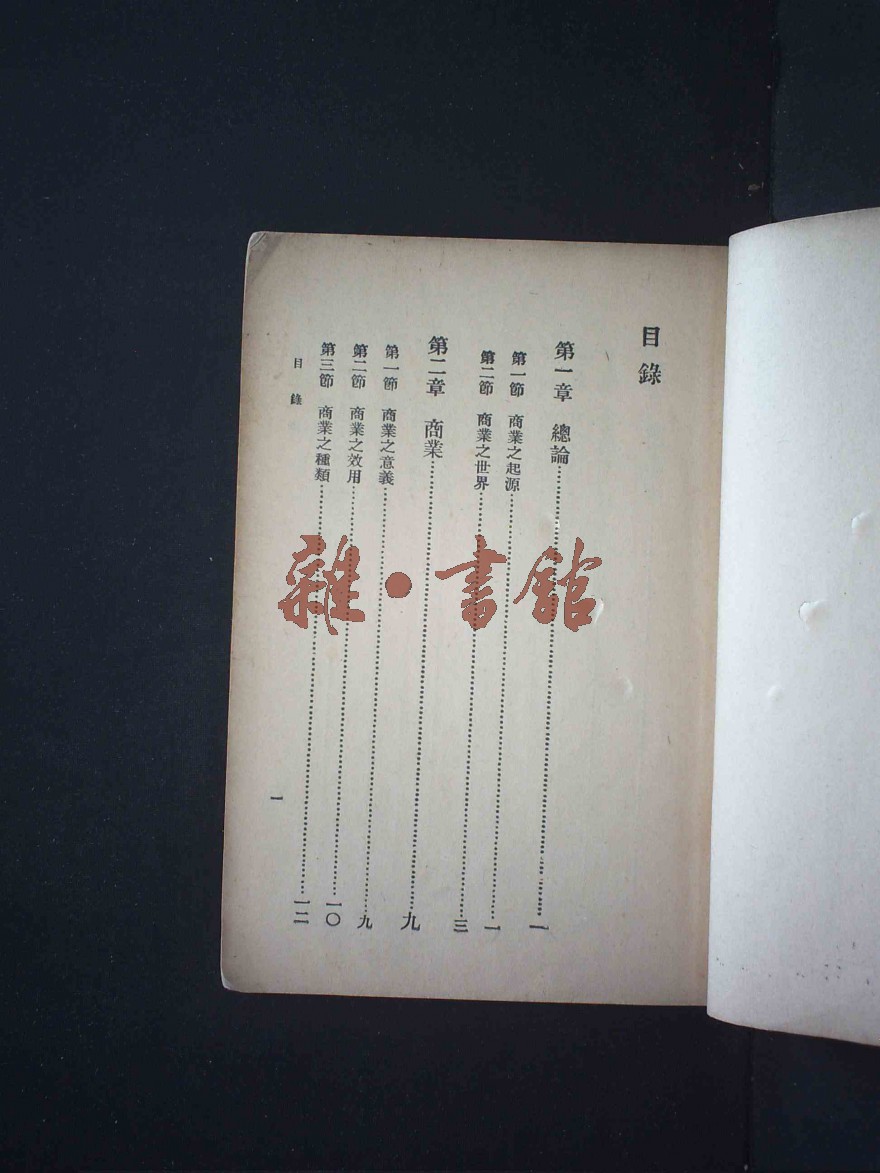 目錄
第一章　總論……一
第一節　商業之起源……一
第二節　商業之世界……三
第二章　商業……九
第一節　商業之意義……九
第二節　商業之效用……一〇
第三節　商業之種類……一二
目錄
一
雜·書館